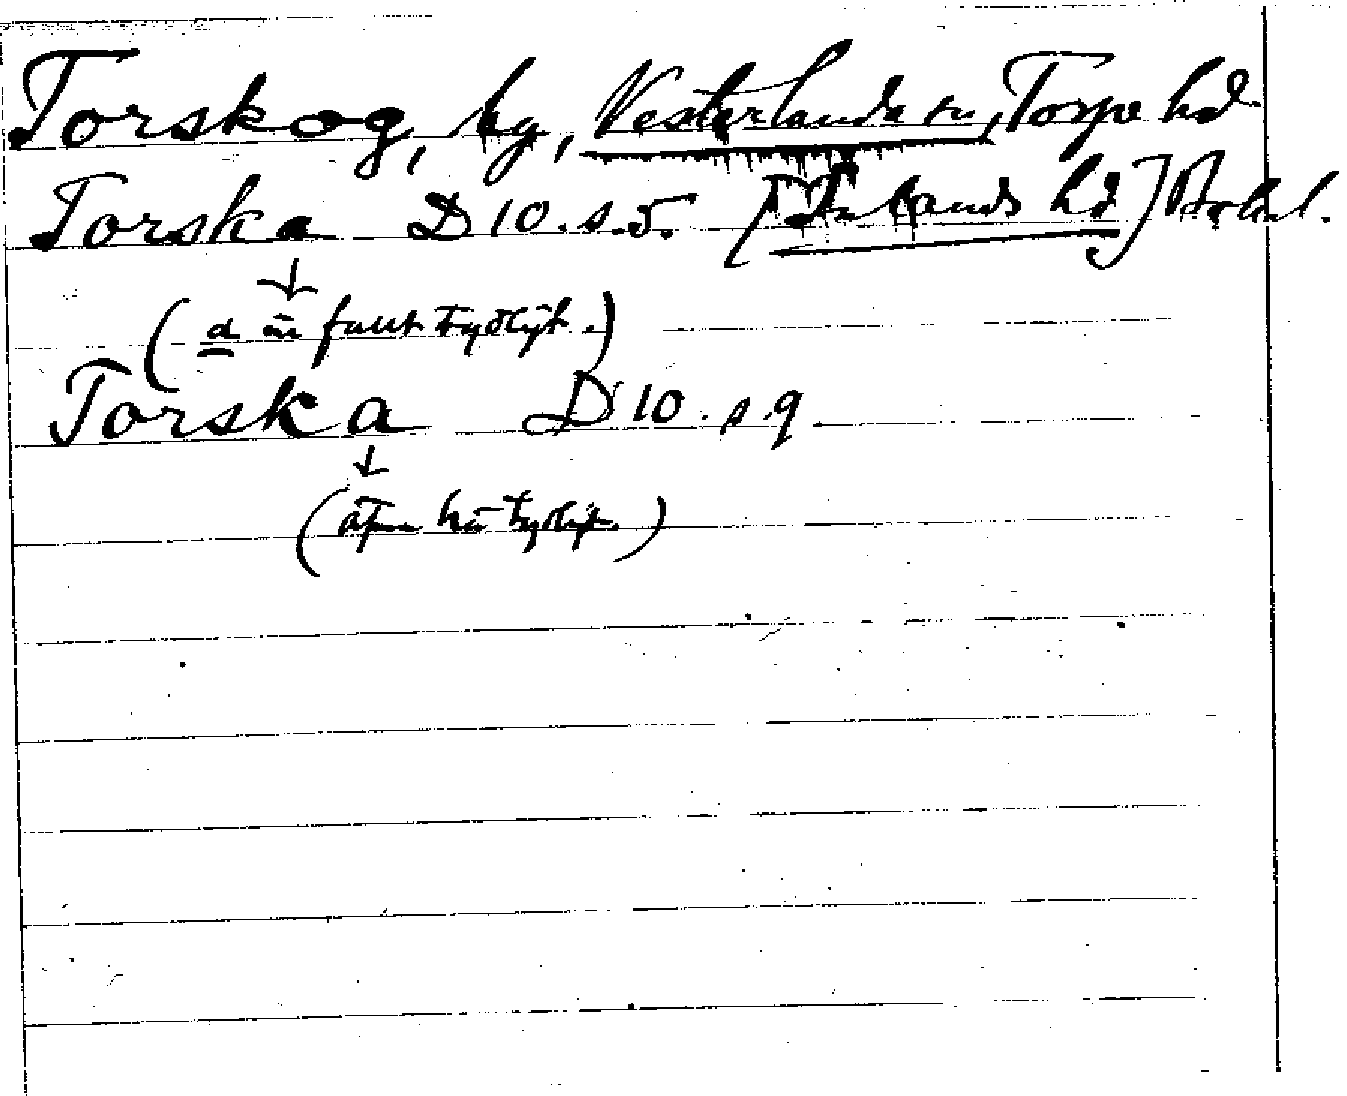 Torskog, by, Vesterlanda sn, Torpe hd
Torska D 10. s. 5. [Inlands hd] Bohul.
(a är fullt tydligt.)
Torska D 10. s. 9
(även här tydligt.)